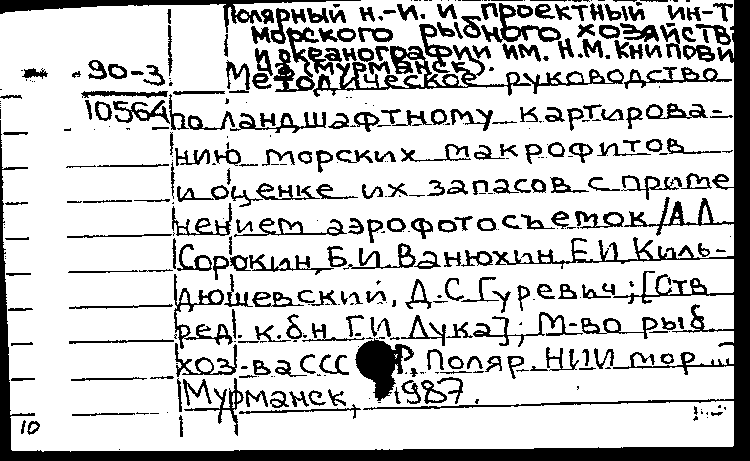 Полярный н.-и. и проектный ин-т
морского рыбного хозяйств
и океанографии им. Н.М. Книпови
(Мурманск).
90-3
10564
Методическое руководство
по ландшафтному картирова-
нию морских макрофитов
и оценке их запасов с приме
нением аэрофотосъемок / А.Л.
Сорокин, Б.И. Ванюхин, Е.И. Киль-
дюшевский, Д.С. Гуревич; [Отв
ред. к.б.н. Г.И. Лука]; М-во рыб
хоз-ва СССР, Поляр. НИИ мор...
Мурманск, 1987.
10